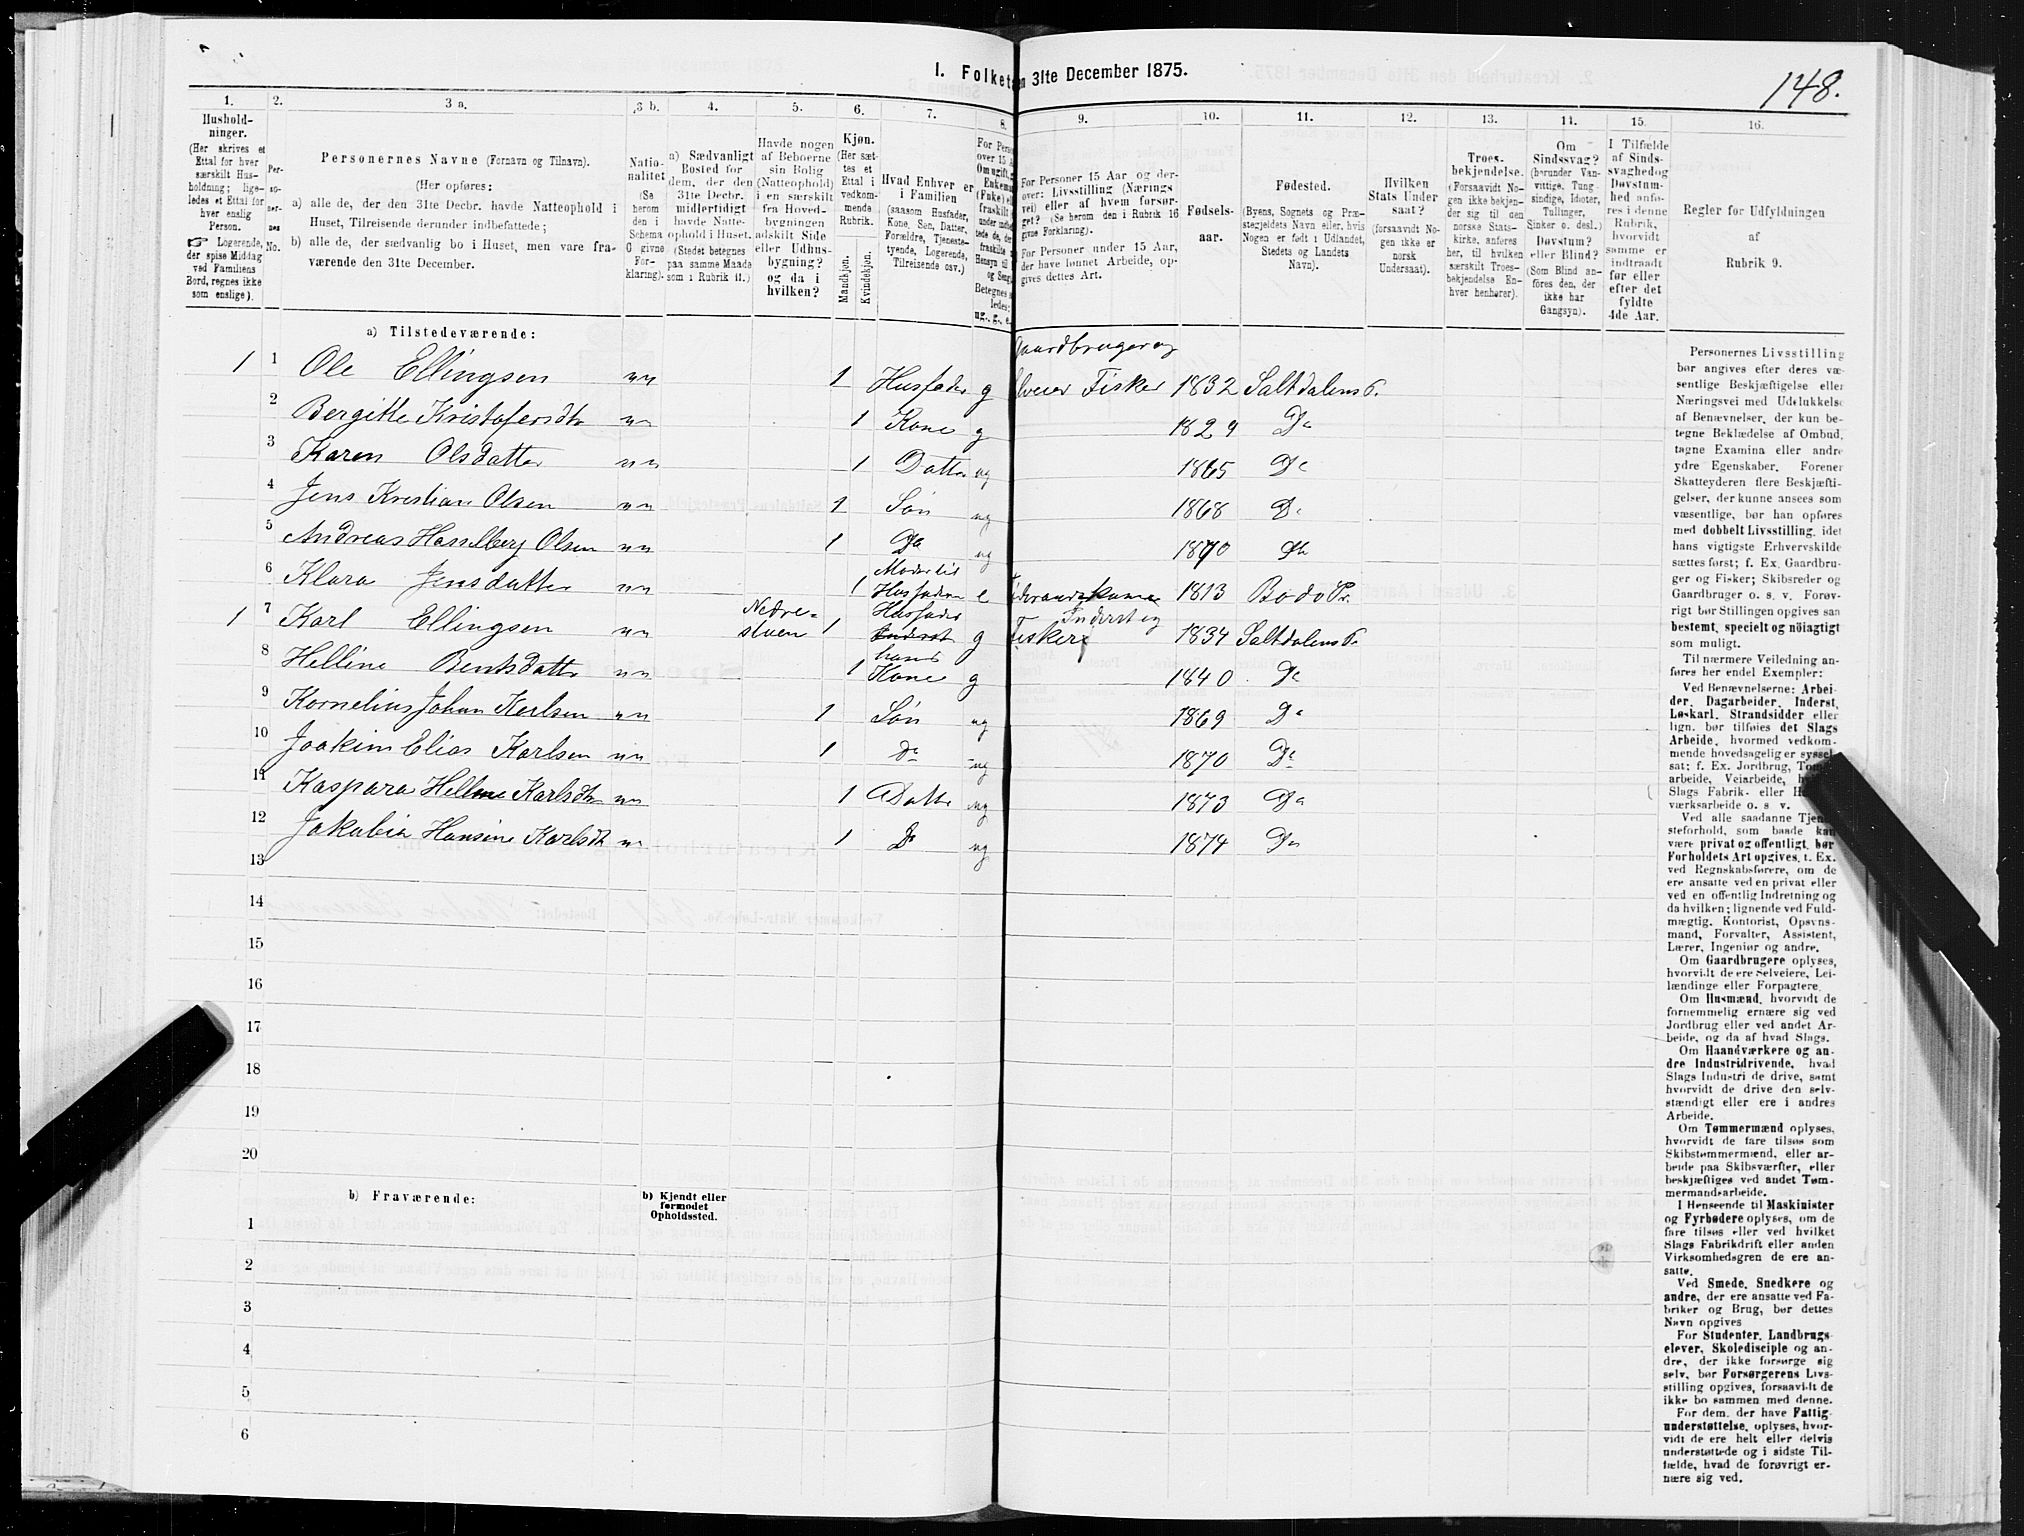 148.
I. Folket n 31te December 1875.
1. 2. 3 a. 3 b. 4. 5. 6. 7. 8. 9. 10. 11. 12. 13. 14. 15. 16.
Hushold-
ninger.
(Her skrives et
Ettal for hver
særskilt Hus-
holdning; lige-
ledes et Ettal for
hver enslig
Person.
☞ Logerende,
der spise Middag
ved Familiens
Bord, regnes ikke
som enslige).
Per-
so-
ner-
nes
No.
Personernes Navne (Fornavn og Tilnavn).
(Her opføres:
a) alle de, der den 31te Decbr. havde Natteophold i
Huset, Tilreisende derunder indbefattede;
b) alle de, der sædvanlig bo i Huset, men vare fra-
værende den 31te December.
Natio-
nalitet
(Se
herom
den i
Schema
C givne
For-
klaring).
a) Sædvanligt
Bosted for
dem, der den
31te Decbr.
midlertidigt
havde Natte-
ophold i Huset.
(Stedet betegnes
paa samme Maade
som i Rubrik 11.)
Havde nogen
af Beboerne
sin Bolig
(Natteophold)
i en særskilt
fra Hoved-
bygningen
adskilt Side
eller Udhus-
bygning?
og da i
hvilken?
Kjøn.
(Her sæt-
tes et
Ettal i
vedkom-
mende
Rubrik.
Mandkjøn.
Kvindekjøn.
Hvad Enhver er
i Familien
(saasom Husfader,
Kone, Søn, Datter,
Forældre, Tjeneste-
tyende, Logerende,
Tilreisende osv.)
For Perso
over 15 A
Om ugift, g
Enkema
(Enke) el
fraskilt
under indb
tede de, de
fraskilte
Hensyn til
og Seng
Betegnes s
ledes:
ug., g., e.
For Personer 15 Aar og der-
over: Livsstilling (Nærings
vei) eller af hvem forsør-
get? (Se herom den i Rubrik 16
givne Forklaring).
For Personer under 15 Aar,
der have lønnet Arbeide, op-
gives dettes Art.
Fødsels-
aar.
Fødested.
(Byens, Sognets og Præ-
stegjeldets Navn eller, hvis
Nogen er født i Udlandet,
Stedets og Landets
Navn).
Hvilken
Stats Under
saat?
(forsaavidt No-
gen ikke er
norsk
Undersaat).
Troes-
bekjendelse.
(Forsaavidt No-
gen ikke bekjen-
der sig til den
norske Stats-
kirke, anføres
her, til hvilken
særskilt Troes-
bekjendelse En-
hver henhører).
Om
Sindssvag?
(herunder Van-
vittige, Tung-
sindige, Idioter,
Tullinger,
Sinker o. desl.)
Døvstum?
eller Blind?
(Som Blind an-
føres den, der
ikke har
Gangsyn).
I Tilfælde
af Sinds-
svaghed og
Døvstum-
hed anfø-
res i denne
Rubrik,
hvorvidt
samme er
indtraadt
før eller
efter det
fyldte
4de Aar.
Regler for Udfyldningen
af
Rubrik 9.
a) Tilstedeværende:
Gaardbruger og
1 1 Ole Ellingsen nn 1 Husfader g Selveier Fisker 1832 Saltdalens P.
2 Bergitte Kristofersdtr nn 1 Kone g 1829 Do
3 Karen Olsdatter nn 1 Datter ug 1865 Do
4 Jens Kristian Olsen nn 1 Søn ug 1868 Do
5 Andreas Hasselberg Olsen nn 1 Do ug 1870 Do
Moder til
6 Klara Jensdatter nn 1 Husfaderen e Føderaadskone 1813 Bodø Pr.
Nedre- Husfader Inderst og
1 7 Karl Ellingsen nn stuen 1 Inderst g Fisker 1834 Saltdalens P.
hans
8 Helline Bentsdatter nn 1 Kone g 1840 Do
9 Kornelius Johan Karlsen nn 1 Søn ug 1869 Do
10 Joakim Elias Karlsen nn 1 do ug 1870 Do
11 Kaspara Helline Karlsdtr nn 1 Datter ug 1873 Do
12 Jakobia Hansine Karlsdtr nn 1 Do ug 1874 Do
13
14
15
16
17
18
19
20
b) Fraværende:
b) Kjendt eller
formodet
Opholdssted.
1
2
3
4
5
6
Personernes Livsstilling
bør angives efter deres væ-
sentlige Beskjæftigelse eller
Næringsvei med Udelukkelse
af Benævnelser, der kun be-
tegne Beklædelse af Ombud,
tagne Examina eller andre
ydre Egenskaber. Forener
Skatteyderen flere Beskjæfti-
gelser, der kunne ansees som
væsentlige, bør han opføres
med dobbelt Livsstilling, idet
hans vigtigste Erhvervskilde
sættes først; f. Ex. Gaardbru-
ger og Fisker; Skibsreder og
Gaardbruger o. s. v. Forøv-
rigt bør Stillingen opgives saa
bestemt, specielt og nöiagtigt
som muligt.
Til nærmere Veiledning an-
føres her endel Exempler:
Ved Benævnelserne: Arbei-
der, Dagarbeider, Inderst,
Løskarl, Strandsidder eller
lign. bør tilføies det Slags
Arbeide, hvormed vedkom-
mende hovedsagelig er syssel-
sat; f. Ex. Jordbrug, Tom
arbeide, Veiarbeide, h
Slags Fabrik- eller H
værksarbeide o. s. v.
Ved alle saadanne Tjen
steforhold, som baade kan
være privat og offentligt, bør
Forholdets Art opgives, t. Ex.
ved Regnskabsførere, om de
ere ansatte ved en privat eller
ved en offentlig Indretning og
da hvilken; lignende ved Fuld-
mægtig, Kontorist, Opsyns-
mand, Forvalter, Assistent,
Lærer, Ingeniør og andre.
Om Gaardbrugere oplyses,
hvorvidt de ere Selveiere, Lei-
lændinge eller Forpagtere.
Om Husmænd, hvorvidt de
fornemmelig ernære sig ved
Jordbrug eller ved andet Ar-
beide, og da af hvad Slags.
Om Haandværkere og an-
dre Industridrivende, hvad
Slags Industri de drive, samt
hvorvidt de drive den selv-
stændigt eller ere i andres
Arbeide.
Om Tømmermænd oplyses,
hvorvidt de fare tilsøs som
Skibstømmermænd, eller ar-
beide paa Skibsværfter, eller
beskjæftiges ved andet Tøm-
mermandsarbeide.
I Henseende til Maskinister
og Fyrbødere oplyses, om de
fare tilsøs eller ved hvilket
Slags Fabrikdrift eller anden
Virksomhedsgren de ere an-
satte.
Ved Smede, Snedkere og
andre, der ere ansatte ved Fa-
briker og Brug, bør dettes
Navn opgives
For Studenter, Landbrugs-
elever, Skoledisciple og an-
dre, der ikke forsørge sig
selv, bør Forsørgerens Livs-
stilling opgives, forsaavidt de
ikke bo sammen med denne.
For dem, der have Fattig-
understøttelse, oplyses, hvor-
vidt de ere helt eller delvis
understøttede og i sidste Til-
fælde, hvad de forøvrigt er-
nære sig ved.